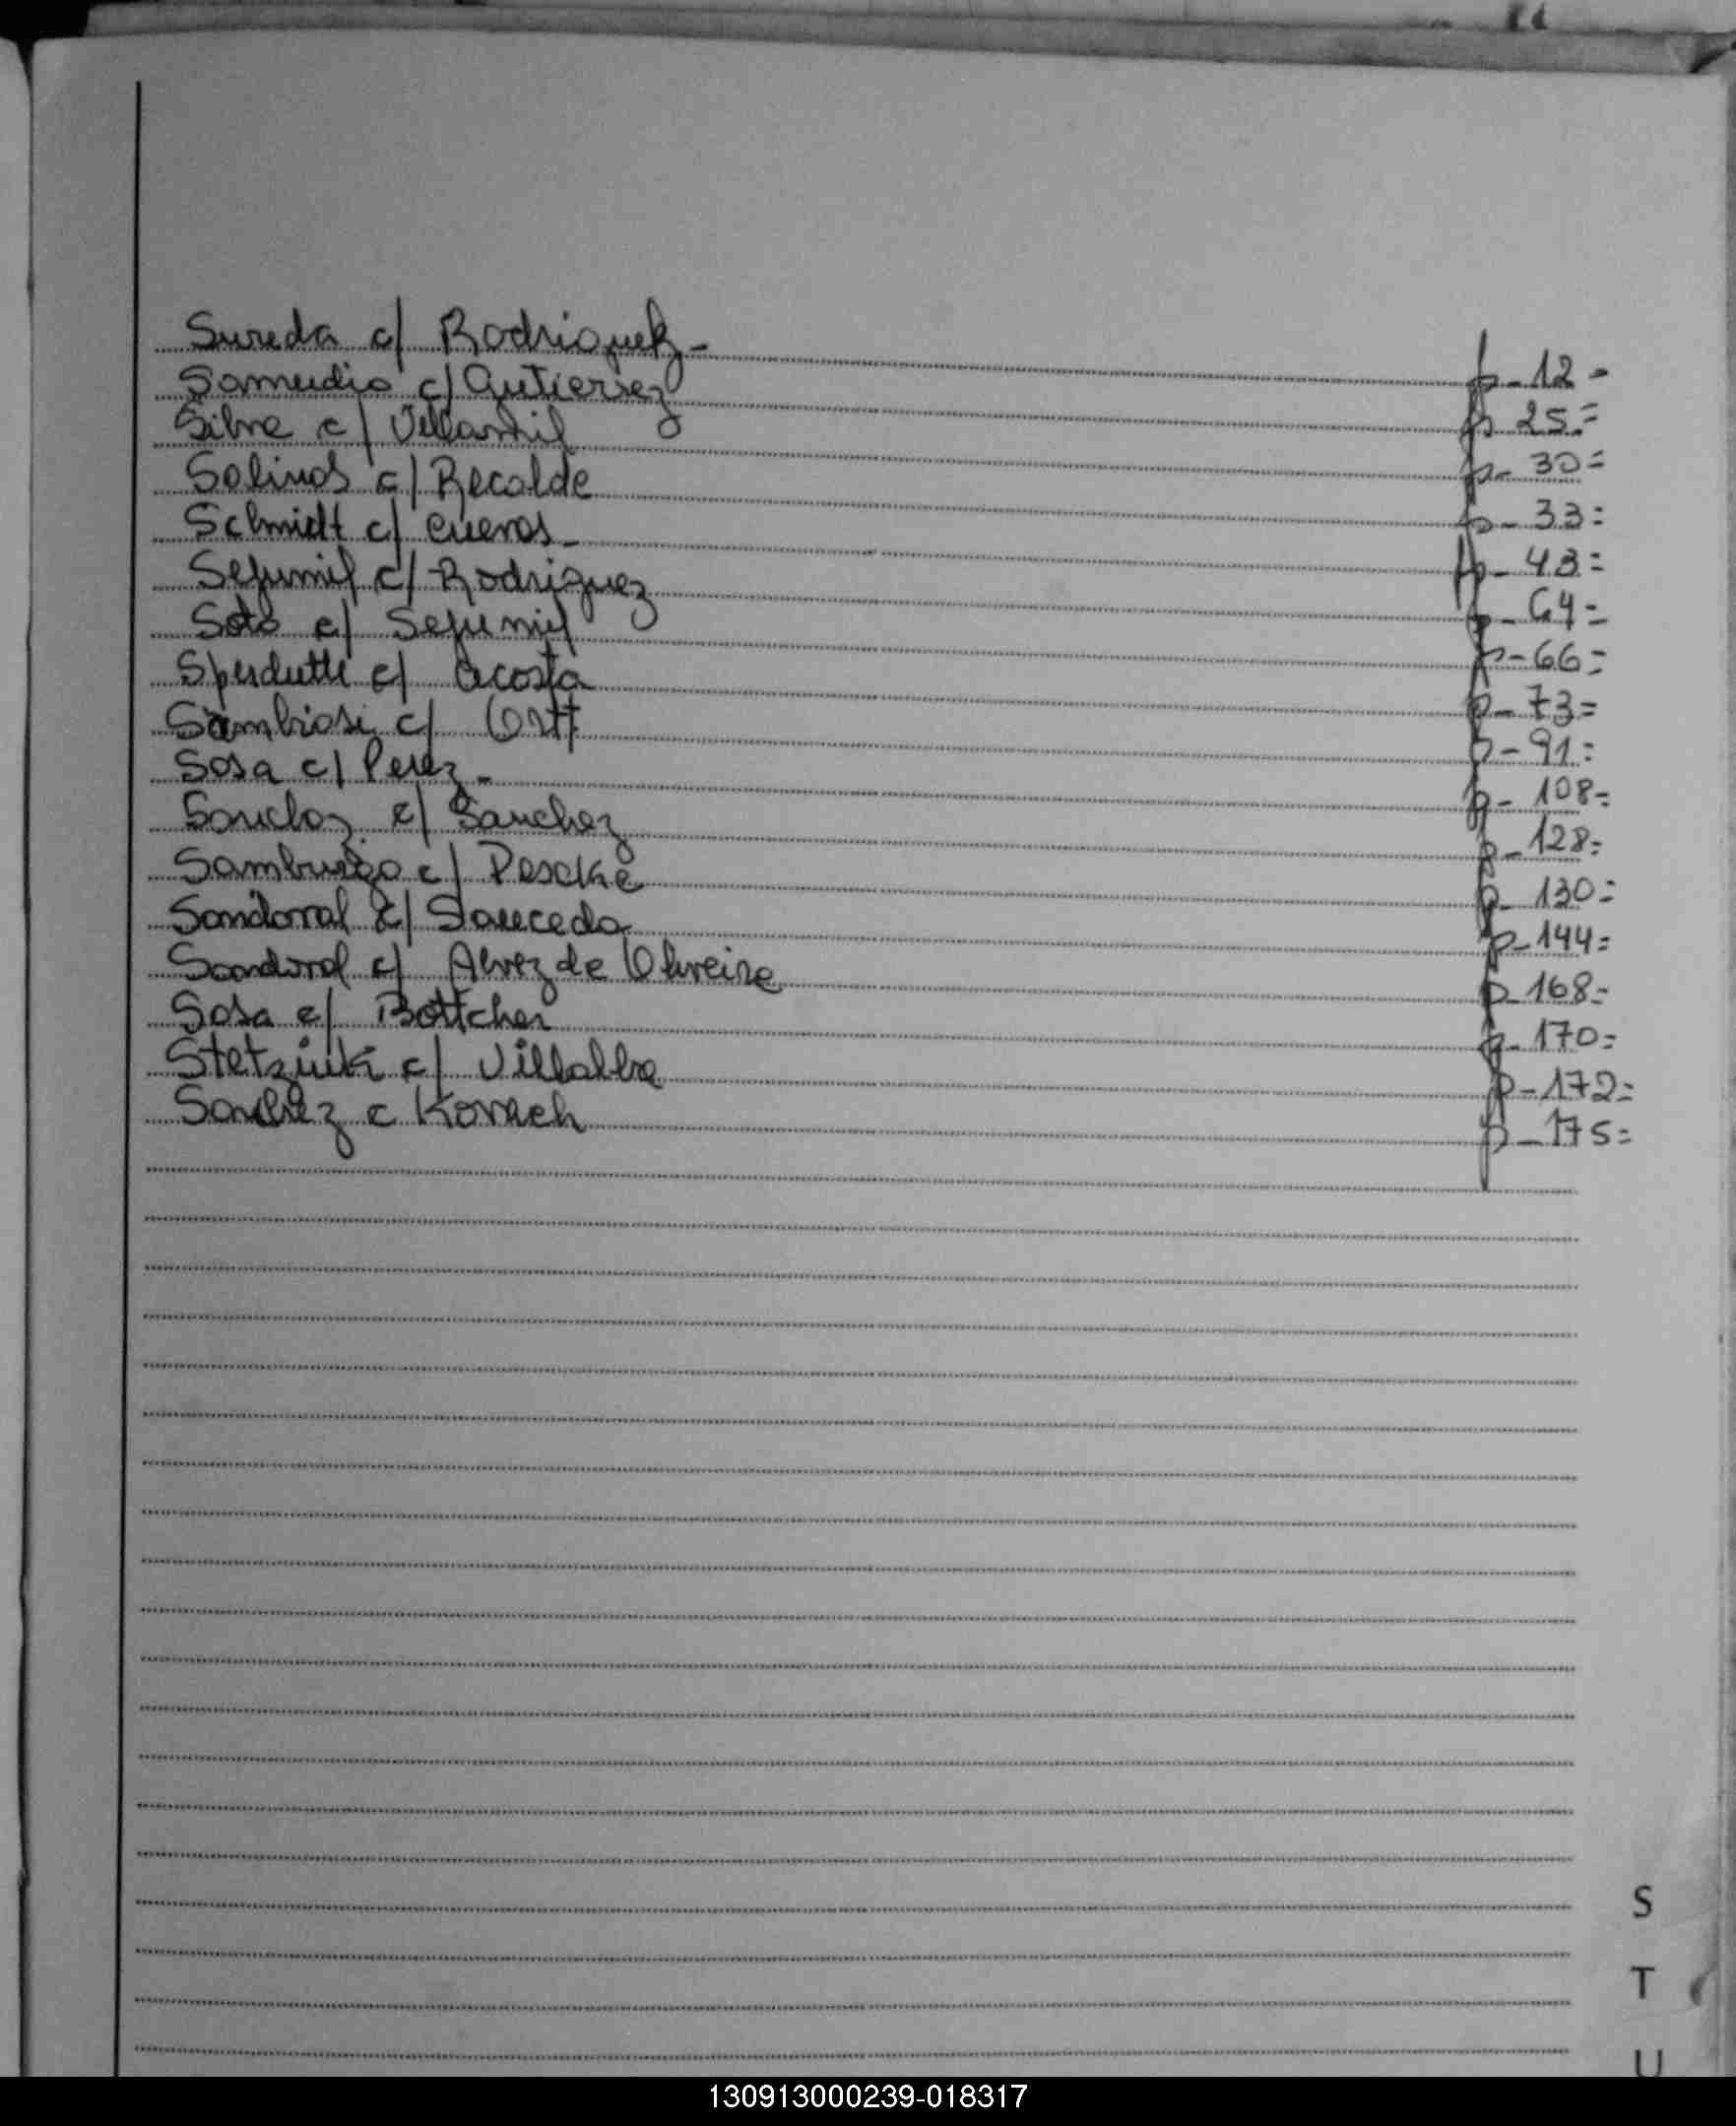 Sureda c/ Rodriguez - p - 12 -
Samudio c/ Gutierrez p 25 =
Silva c/ Villamil p - 30 =
Salinas c/ Recalde p - 33 =
Schmidt c/ Cuevas - p - 43 =
c/ Rodriguez p - 64 =
Soto c/ p - 66 =
Sperdutti c/ Acosta p - 73 =
c/ Ortt p - 91 =
Sosa c/ Perez - p - 108 =
c/ Sanchez p - 128 =
c/ Peschke p - 130 =
Sandoval c/ Sauceda p - 144 =
Sandoval c/ Alvez de Oliveira p - 168 =
Sosa c/ Bottcher p - 170 =
c/ Villalba p - 172 =
Sanchez c Kovach p - 175 =
S
T
U
130913000239-018317